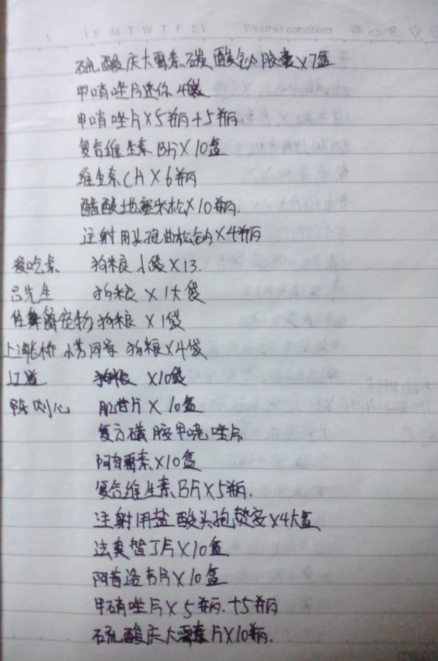 M T W T F S Weather conditions
硫酸庆大霉素碳酸铋胶囊×7盒
甲硝唑片迷你4袋
甲硝唑片×5瓶+5瓶
复合维生素B片×10盒
维生素C片×6瓶
醋酸地塞米松×10瓶.
注射用头孢曲松钠×4瓶
爱吃素 狗粮小袋×13.
吕先生 狗粮×1大袋
宠物狗粮×1袋
狗粮×4袋
×10袋
陈 肌苷片×10盒
复方磺胺甲噁唑片
阿奇霉素×10盒
复合维生素B片×5瓶.
注射用盐酸头孢替安×4大盒
法莫替丁片×10盒
阿昔洛韦片×10盒
甲硝唑片×5瓶.+5瓶
硫酸庆大霉素片×10瓶.